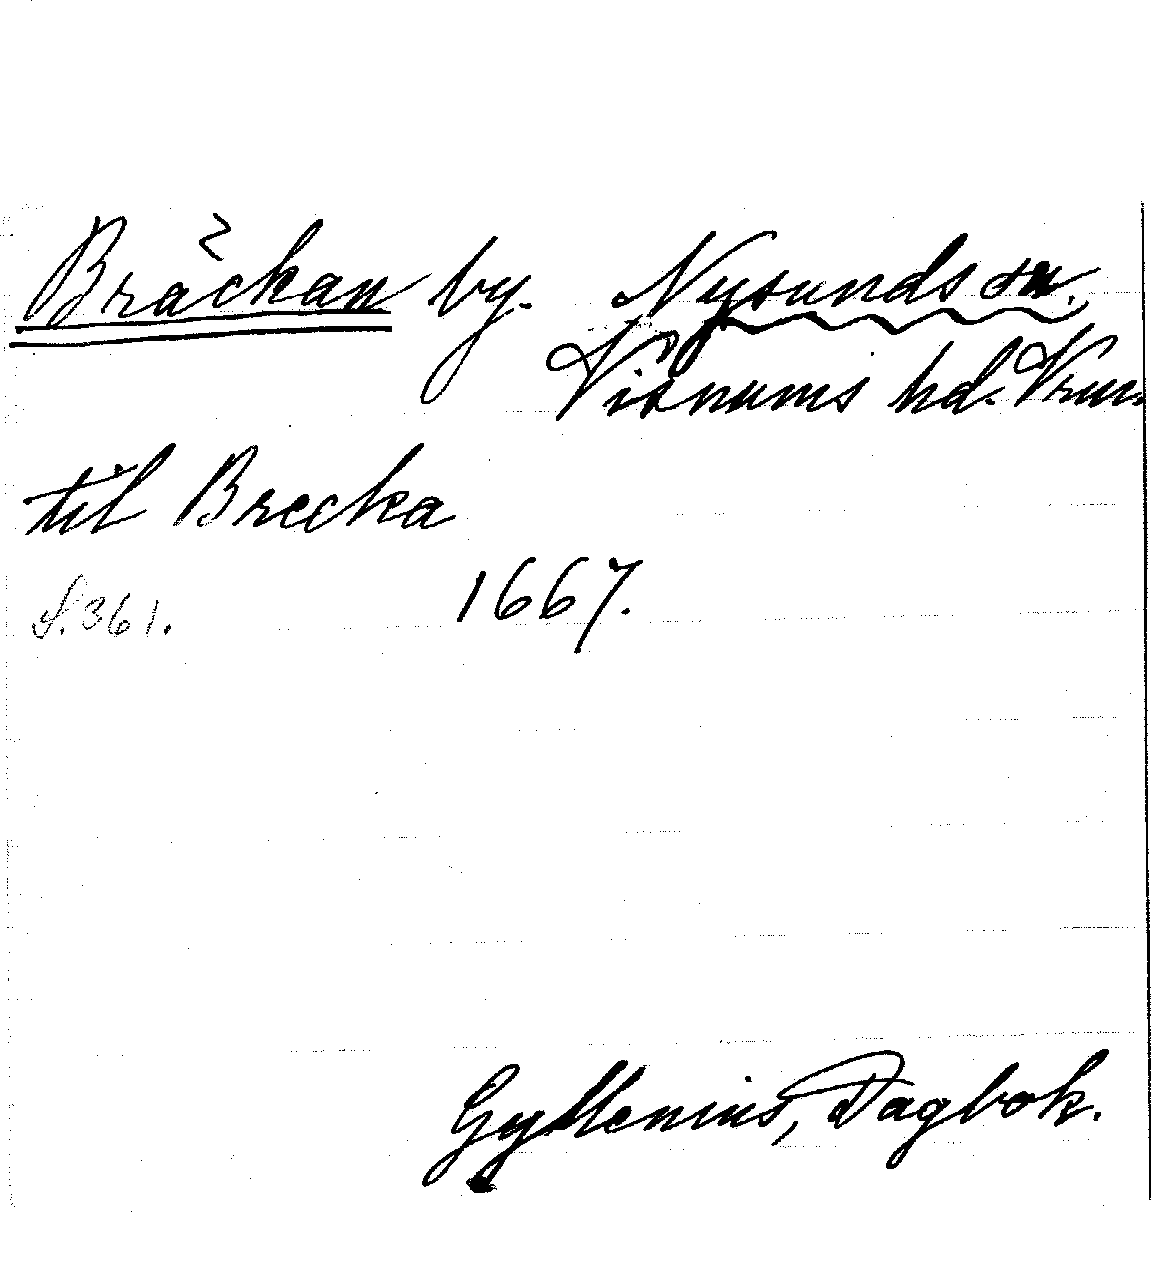 Bräckan by. Nysunds sn.,
Visnums hd. Vrml.
til Brecka
S. 361. 1667.
Gyllenius, Dagbok.